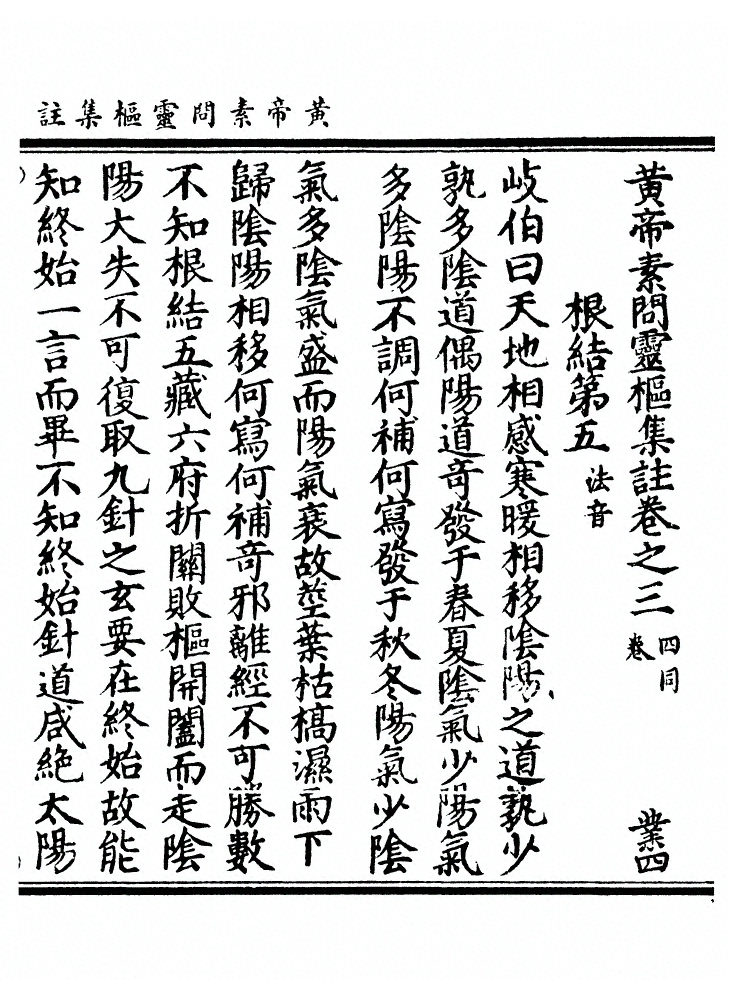 黃帝素問靈樞集註
黃帝素問靈樞集註卷之三 四同卷 業四
根結第五 法音
岐伯曰天地相感寒暖相移陰陽之道孰少
孰多陰道偶陽道奇發于春夏陰氣少陽氣
多陰陽不調何補何寫發于秋冬陽氣少陰
氣多陰氣盛而陽氣衰故莖葉枯槁濕雨下
歸陰陽相移何寫何補奇邪離經不可勝數
不知根結五藏六府折關敗樞開闔而走陰
陽大失不可復取九針之玄要在終始故能
知終始一言而畢不知終始針道咸絕太陽